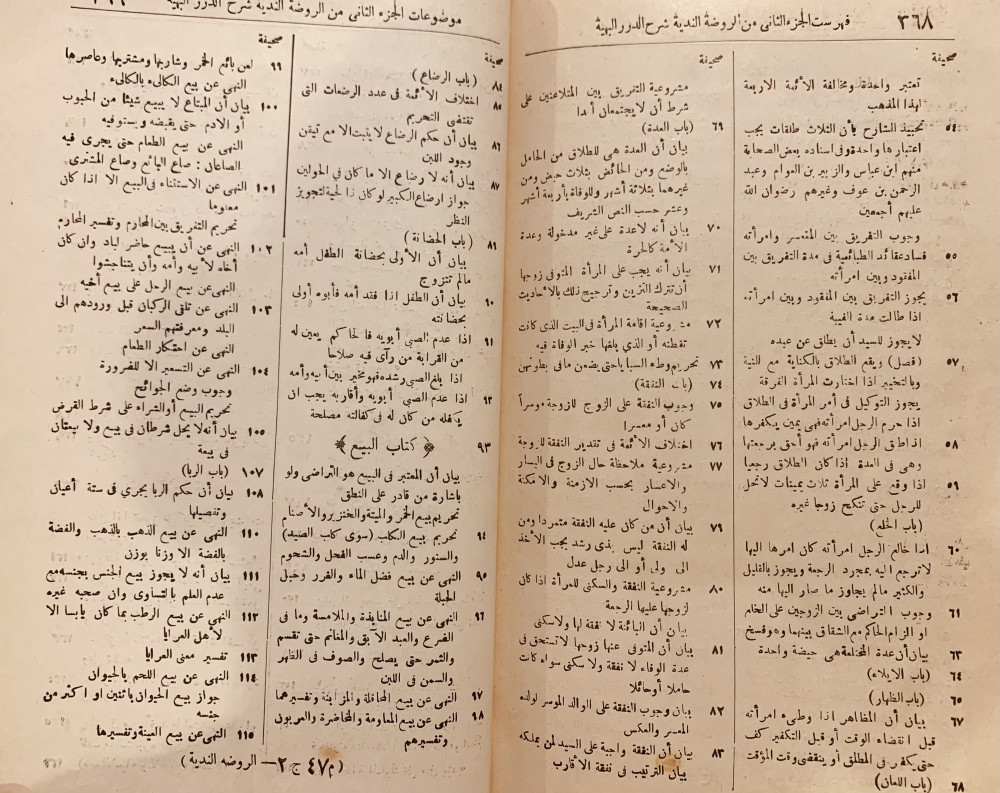 ٣٦٨ فهرست الجزء الثانى من الروضة الندية شرح الدرر البهية
صحيفة
تعتبر واحدة ومخالفة الأئمة الاربعة
لهذا المذهب
٥٤ تحبيذ الشارح بأن الثلاث طلقات يجب
اعتبارها واحدة وفى اسناده بعض الصحابة
منهم ابن عباس والزبير بن العوام وعبد
الرحمن بن عوف وغيرهم رضوان الله
عليهم أجمعين
وجوب التفريق بين المتعسر وامرأته
٥٥ فساد عقائد الطبائعية فى مدة التفريق بين
المفقود وبين امرأته
٥٦ يجوز التفريق بين المفقود وبين امرأته
اذا طالت مدة الغيبة
لا يجوز للسيد أن يطلق عن عبده
٥٧ (فصل) ويقع الطلاق بالكناية مع النية
وبالتخيير اذا اختارت المرأة الفرقة
يجوز التوكيل فى أمر المرأة فى الطلاق
اذا حرم الرجل امرأته فهى يمين يكفرها
٥٨ اذا طلق الرجل امرأته فهو أحق برجعتها
وهى فى العدة اذا كان الطلاق رجعيا
٥٩ اذا وقع على المرأة ثلاث يمينات لا تحل
للرجل حتى تنكح زوجا غيره
(باب الخلع)
٦٠ اذا خالع الرجل امرأته كان امرها اليها
لا ترجع اليه بمجرد الرجعة ويجوز بالقليل
والكثير مالم يجاوز ما صار اليها منه
٦١ وجوب التراضى بين الزوجين على الخلع
او الزام الحاكم مع الشقاق بينهما وهو فسخ
٦٣ بيان أن عدة المختلعة هى حيضة واحدة
٦٤ (باب الايلاء)
٦٥ (باب الظهار)
٦٧ بيان أن المظاهر اذا وطىء امرأته
قبل انقضاء الوقت أو قبل التكفير كف
حتى يكفر فى المطلق أو ينقضى وقت المؤقت
٦٨ (باب اللعان)
صحيفة
مشروعية التفريق بين المتلاعنين على
شرط أن لا يجتمعان أبدا
٦٩ (باب العدة)
بيان أن العدة هى للطلاق من الحامل
بالوضع ومن الحائض بثلاث حيض ومن
غيرهما بثلاثة أشهر وللوفاة بأربعة أشهر
وعشر حسب النص الشريف
٧٠ بيان أنه لاعدة على غير مدخولة وعدة
الأمة كالحرة
٧١ بيان أنه يجب على المرأة المتوفى زوجها
أن تترك التزين وترجيح ذلك بالأحاديث
الصحيحة
٧٢ مشروعية اقامة المرأة فى البيت الذى كانت
تقطنه أو الذى بلغها خبر الوفاة فيه
٧٣ تحريم وطء السبايا حتى يضعن ما فى بطونهن
٧٤ (باب النفقة)
٧٥ وجوب النفقة على الزوج للزوجة موسرا
كان أو معسرا
٧٦ اختلاف الأئمة فى تقدير النفقة للزوجة
٧٧ مشروعية ملاحظة حال الزوج فى اليسار
والاعسار بحسب الازمنة والامكنة
والاحوال
٧٩ بيان أن من كان عليه النفقة متمردا ومن
له النفقة ليس بذى رشد يجب الأخذ
الى ولى أو الى رجل عدل
٨٠ مشروعية النفقة والسكنى للمرأة اذا كان
لزوجها عليها الرجعة
بيان أن البائنة لا نفقة لها ولاسكنى
٨١ بيان أن المتوفى عنها زوجها لا تستحق فى
عدة الوفاء لا نفقة ولا سكنى سواء كانت
حاملا أو حائلا
٨٢ بيان وجوب النفقة على الوالد الموسر لولده
المعسر والعكس
٨٣ بيان أن النفقة واجبة على السيد لمن يملكه
بيان الترتيب فى نفقة الأقارب
موضوعات الجزء الثانى من الروضة الندية شرح الدرر البهية
صحيفة
٨٤ (باب الرضاع)
٨٥ اختلاف الأئمة فى عدد الرضعات التى
تقتضى التحريم
٨٦ بيان أن حكم الرضاع لا يثبت الا مع تيقن
وجود اللبن
٨٧ بيان أنه لا رضاع الا ما كان فى الحولين
جواز ارضاع الكبير لو كان ذا لحية لتجويز
النظر
٨٩ (باب الحضانة)
بيان أن الأولى بحضانة الطفل أمه
مالم تتزوج
٩٠ بيان أن الطفل اذا فقد أمه فأبوه أولى
بحضانته
٩١ اذا عدم الصبى أبويه فالحاكم يعين له
من القرابة من رآى فيه صلاحا
اذا بلغ الصبى رشده فهو مخير بين أبيه وأمه
٩٢ اذا عدم الصبى أبويه وأقاربه يجب ان
يكفله من كان له فى كفالته مصلحة
٩٣ ﴿كتاب البيع﴾
بيان أن المعتبر فى البيع هو التراضى ولو
باشارة من قادر على النطق
تحريم بيع الخمر والميتة والخنزير والأصنام
٩٤ تحريم بيع الكلب (سوى كلب الصيد)
والسنور والدم وعسب الفحل والشحوم
٩٥ النهى عن بيع فضل الماء والغرر وحبل
الحبلة
٩٦ النهى عن بيع المنابذة والملامسة وما فى
الضرع والعبد الآبق والمغانم حتى تقسم
والثمر حتى يصلح والصوف فى الظهر
والسمن فى اللبن
٩٧ النهى عن بيع المحاقلة والمزابنة وتفسيرهما
٩٨ النهى عن بيع المعاومة والمخاضرة والعربون
وتفسيرهم
صحيفة
٩٩ لعن بائع الخمر وشاربها ومشتريها وعاصرها
النهى عن بيع الكالىء بالكالىء
١٠٠ بيان أن المبتاع لا يبيع شيئا من الحبوب
أو الادم حتى يقبضه ويستوفيه
النهى عن بيع الطعام حتى يجرى فيه
الصاعان : صاع البائع وصاع المشترى
١٠١ النهى عن الاستثناء فى البيع الا اذا كان
معلوما
تحريم التفريق بين المحارم وتفسير المحارم
١٠٢ النهى عن أن يبيع حاضر لباد وان كان
أخاه لأبيه وأمه وأن يتناجشوا
النهى عن بيع الرجل على بيع أخيه
١٠٣ النهى عن تلقى الركبان قبل ورودهم الى
البلد ومعرفتهم السعر
النهى عن احتكار الطعام
١٠٤ النهى عن التسعير الا للضرورة
وجوب وضع الجوائح
تحريم البيع أوالشراء على شرط القرض
١٠٥ بيان أنه لا يحل شرطان فى بيع ولا بيعتان
فى بيعة
١٠٧ (باب الربا)
١٠٨ بيان أن حكم الربا يجرى فى ستة أعيان
وتفصيلها
١١٠ النهى عن بيع الذهب بالذهب والفضة
بالفضة الا وزنا بوزن
١١١ بيان أنه لا يجوز بيع الجنس بجنسه مع
عدم العلم بالتساوى وان صحبه غيره
١١٢ النهى عن بيع الرطب بما كان يابسا الا
لأهل العرايا
١١٣ تفسير معنى العرايا
١١٤ النهى عن بيع اللحم بالحيوان
جواز بيع الحيوان باثنين او اكثر من
جنسه
١١٥ النهى عن بيع العينة وتفسيرها
(م ٤٧ ج ٢ — الروضه الندية)